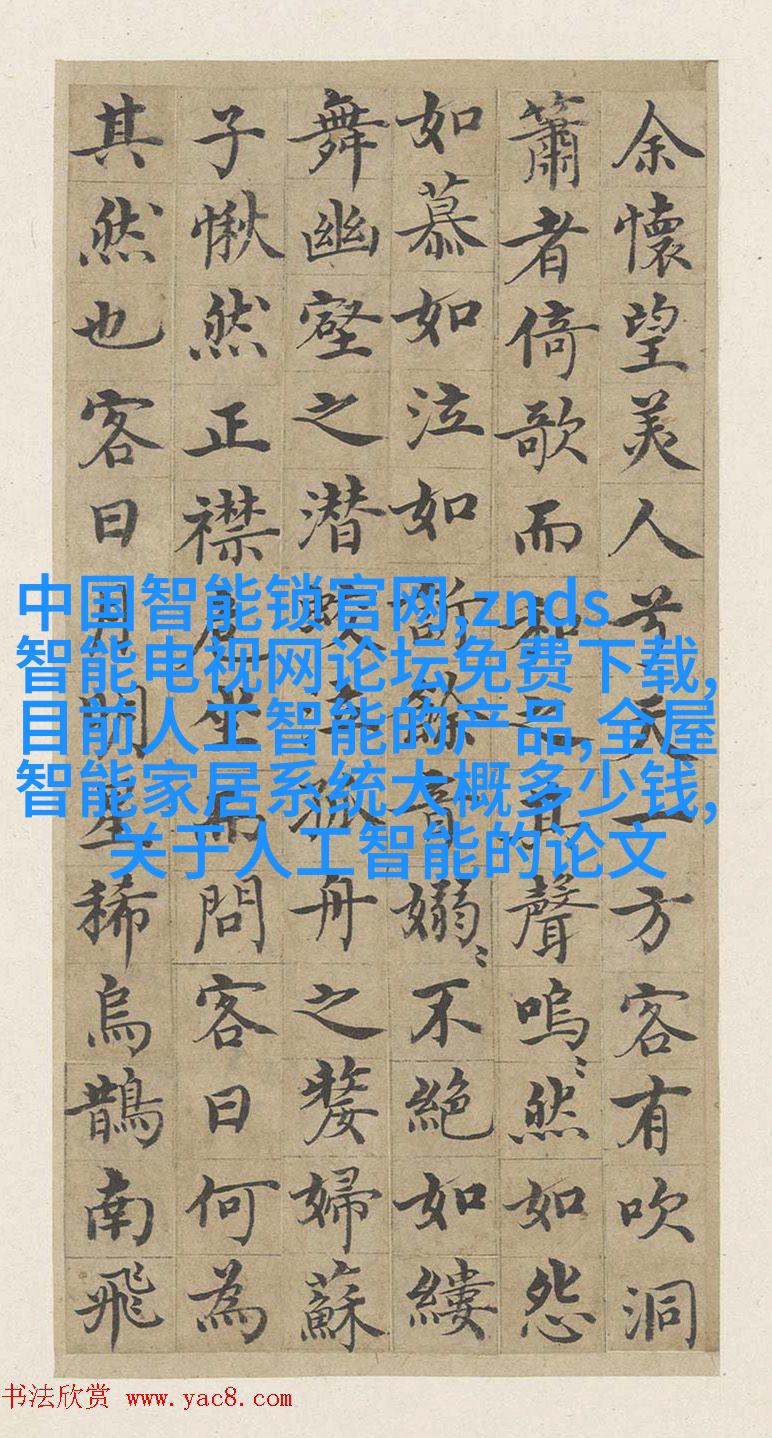 余懷望美人兮天一方客有吹洞
簫者倚歌而和之其聲嗚〻然如怨
如慕如泣如訴餘音嫋〻不絕如縷
舞幽壑之潜蛟泣孤舟之嫠婦蘇
子愀然正襟危坐而問客曰何為
其然也客曰月明星稀烏鵲南飛
中国智能锁官网,znds
智能电视网论坛免费下载,
目前人工智能的产品,全屋
智能家居系统大概多少钱,
关于人工智能的论文
书法欣赏 www.yac8.com